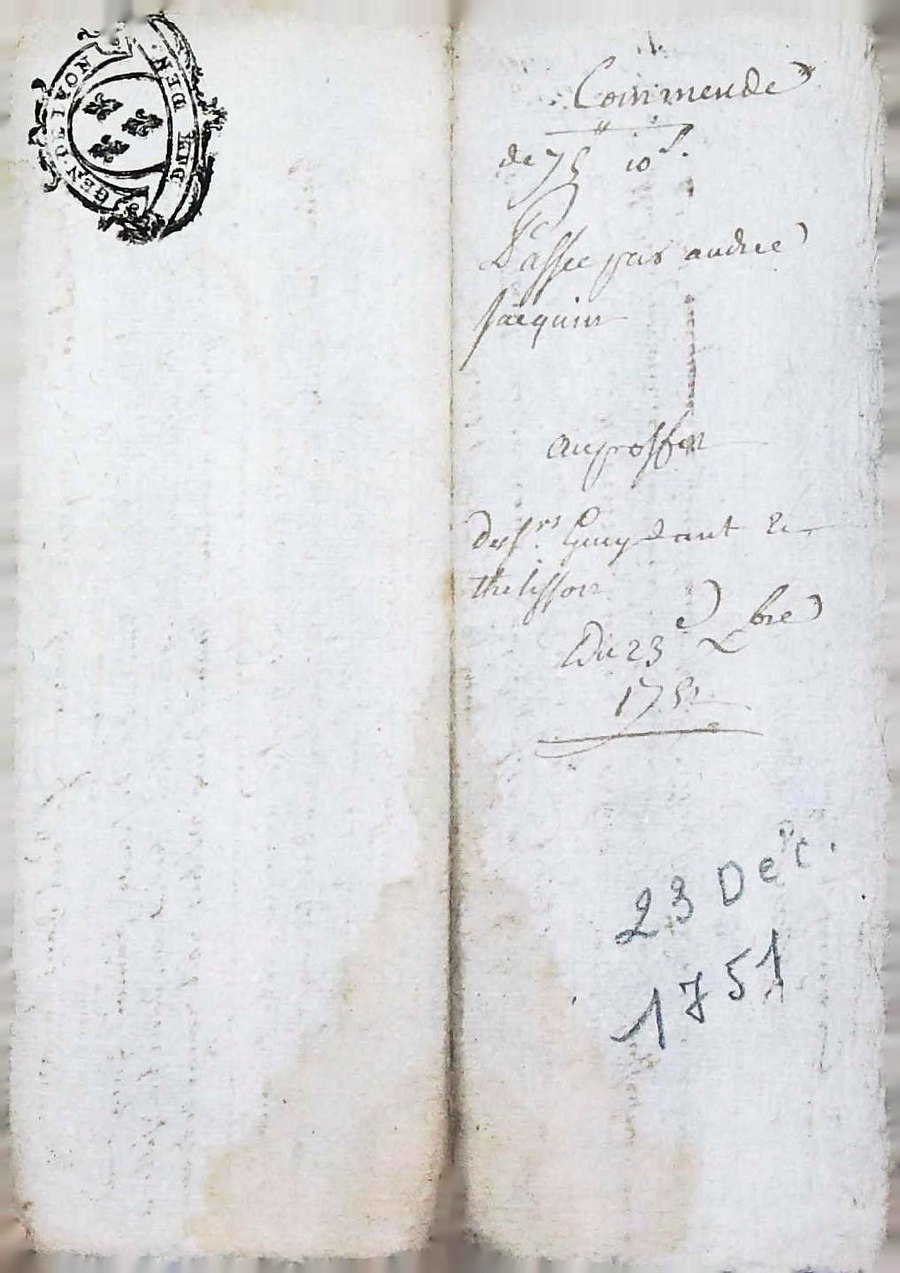 GEN. DE LYON
DEN
Commende
de 75 ᵗᵗ 10 ˢ.
Passée par andree
Jacquin
au proffit
des sʳˢ Guy dant &
thelisson
Du 23ᵉ Xbre
1751
23 Dec.
1751